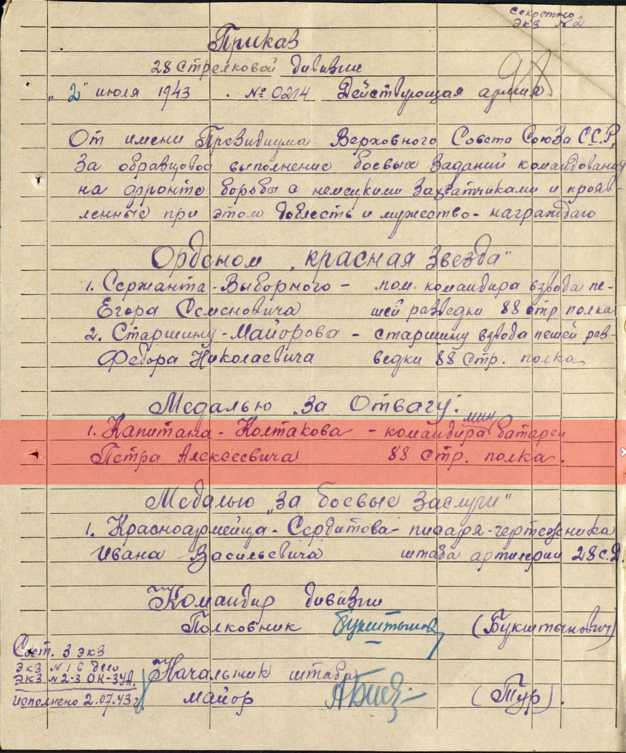 Секретно
экз №2
Приказ
28 стрелковой дивизии
"2" июля 1943 . №0214 Действующая армия
98
От имени Президиума Верховного Совета Союза ССР,
за образцовое выполнение боевых заданий командования
на фронте борьбы с немецкими захватчиками и прояв-
ленные при этом доблесть и мужество - награждаю
Орденом „красная звезда"
1. Сержанта - Выборного - пом. командира взвода пе-
Егора Семеновича шей разведки 88 стр. полка
2. Старшину - Майорова - старшину взвода пешей раз-
Федора Николаевича ведки 88 стр. полка
Медалью „За Отвагу".
мин
1. Капитана - Колтакова - командира батареи
Петра Алексеевича 88 стр. полка.
Медалью „За боевые заслуги"
1. Красноармейца - Сердитова - писаря-чертежника
Ивана Васильевича штаба артилерии 28 с.д.
Командир дивизии
Полковник (Букштынович)
Сост. 3 экз
экз №1 с дело
экз №2-3 ОК-3УА.
исполнено 2.07.43г
Начальник штаба
майор (Тур).